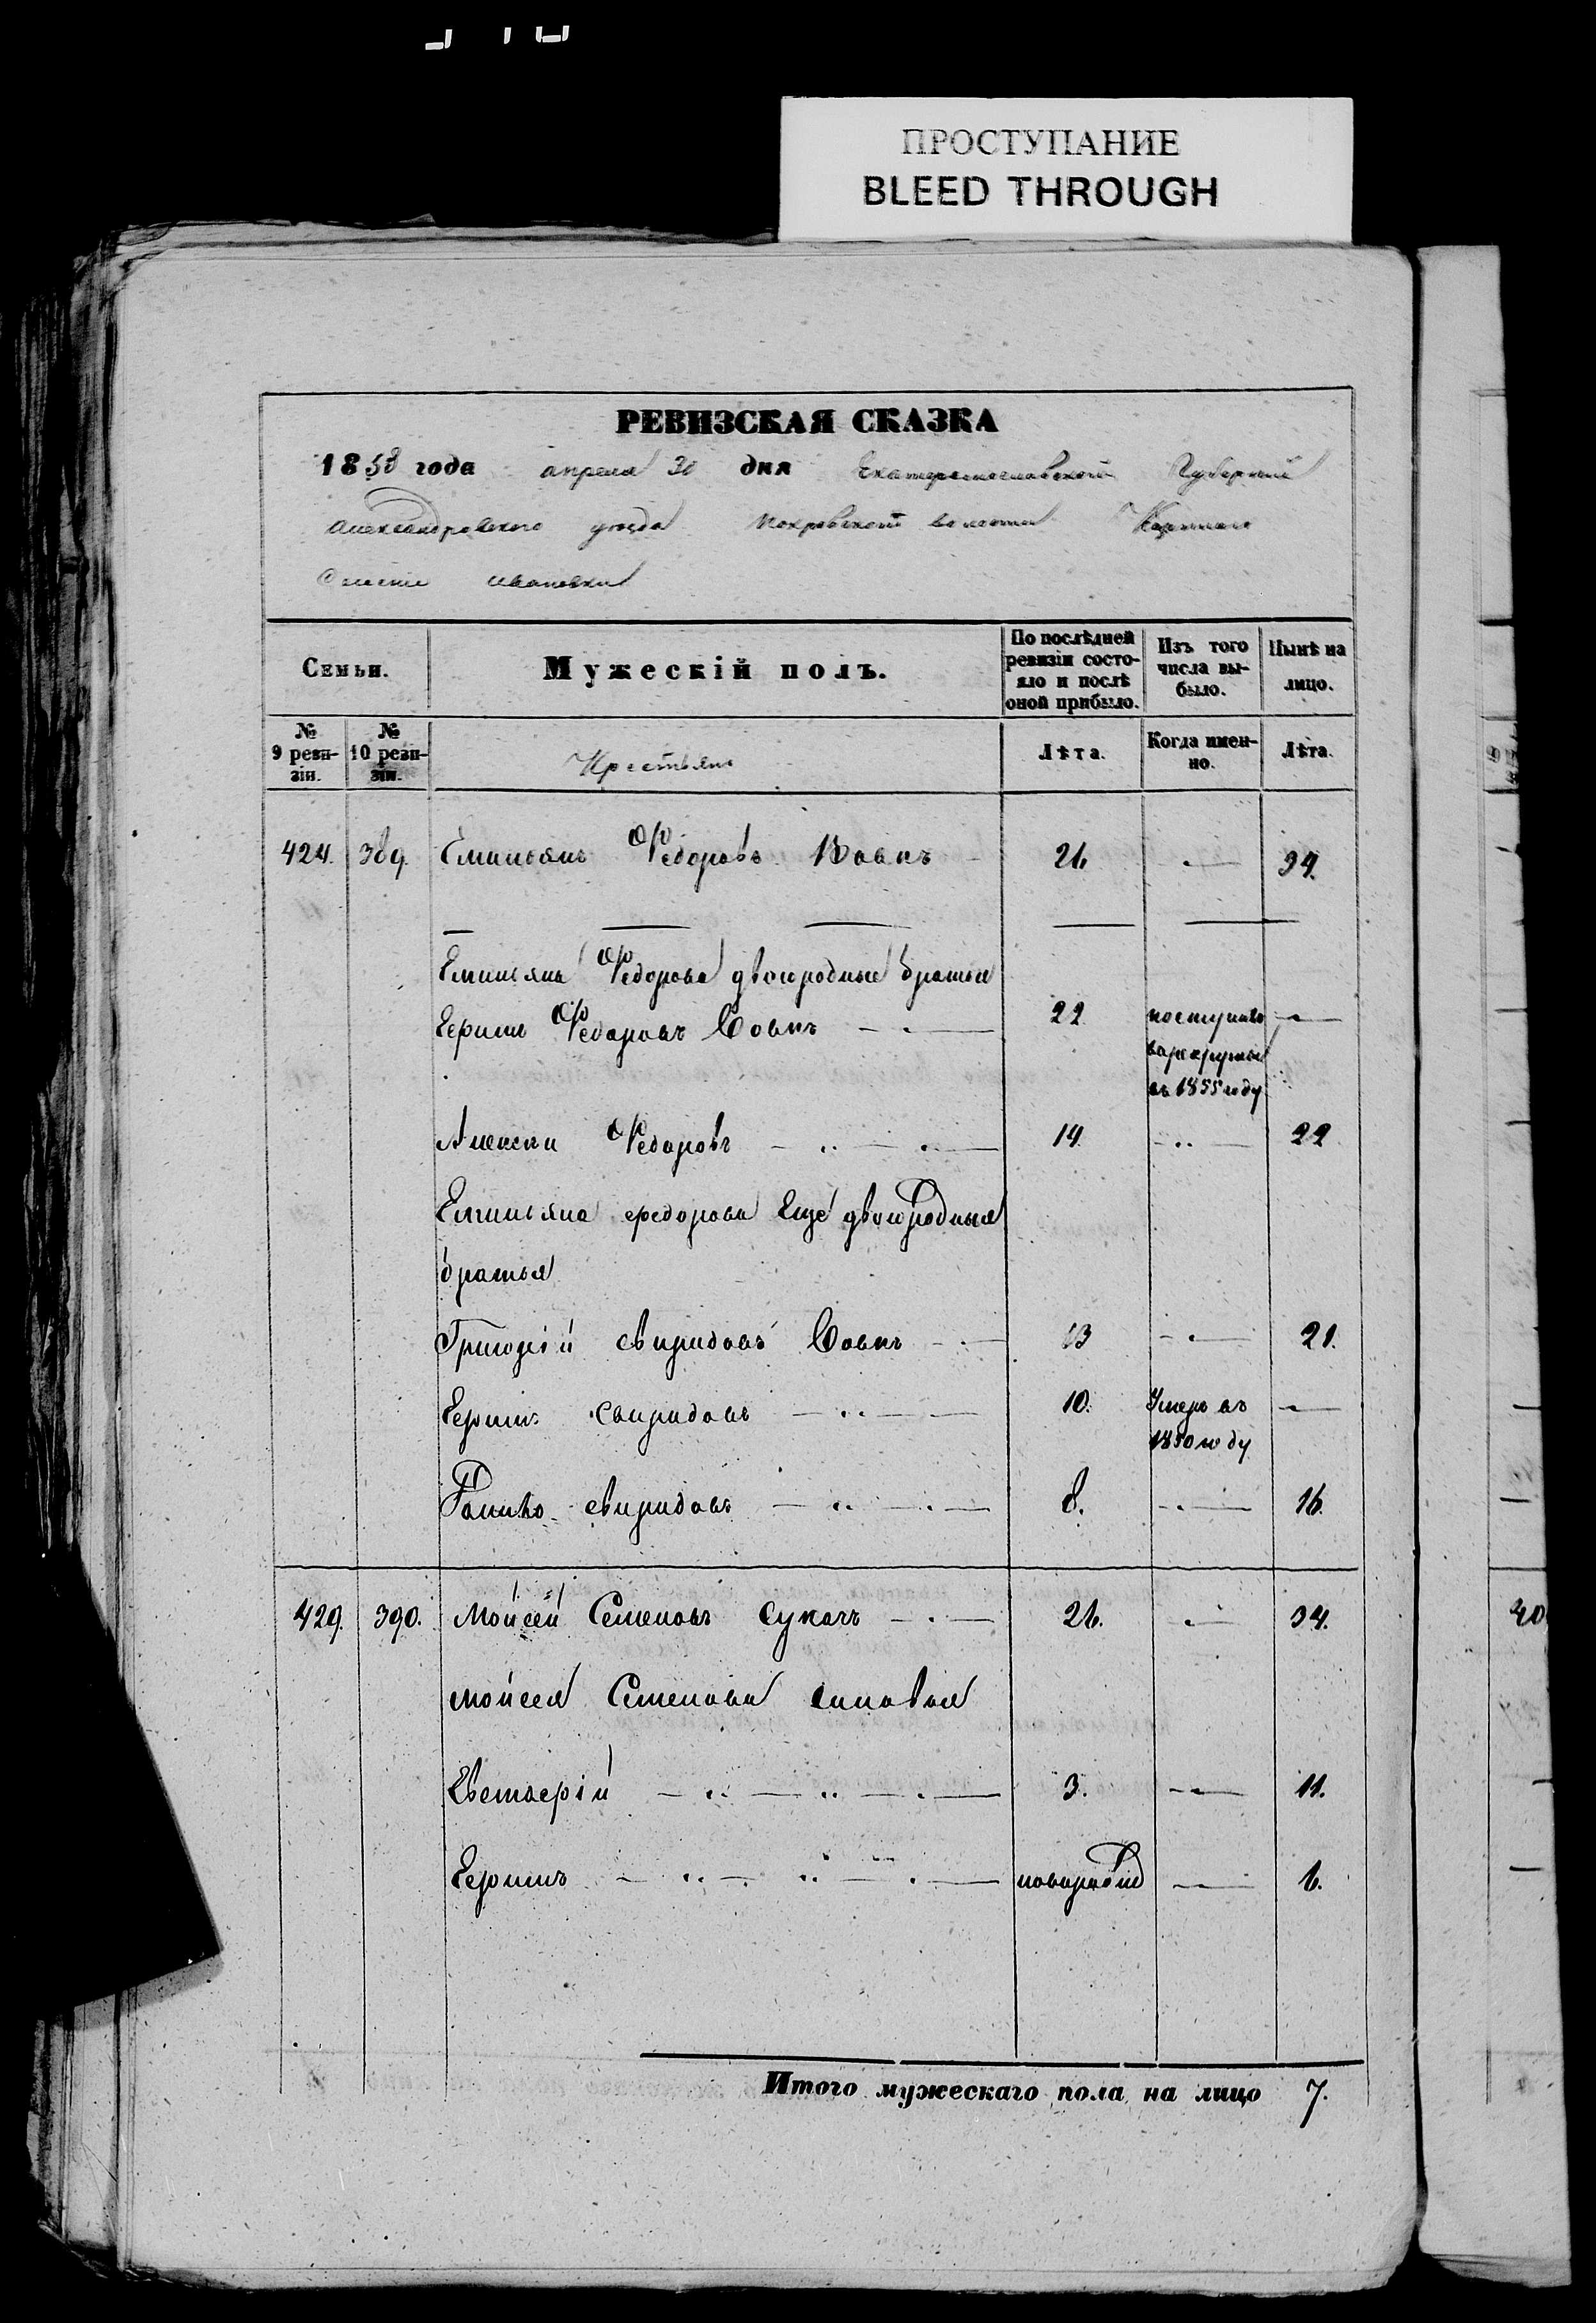 ПРОСТУПАНИЕ
BLEED THROUGH
РЕВИЗСКАЯ СКАЗКА
1858 года апреля 30 дня Екатеринославской Губернии
Александровского уезда Покровской волости Казенного
Селения Ивановки
Семьи. Мужескій полъ. По послѣдней ревизіи состояло и послѣ оной прибыло. Изъ того числа выбыло. Нынѣ на лицо.
№ 9 ревизіи. № 10 ревизіи. Крестьяне Лѣта. Когда именно. Лѣта.
424. 389. Емильянъ Федоровъ Вовкъ 26 34.
Емильяна Федорова двоюродные братья
Герасимъ Федоровъ Вовкъ 22 поступилъ
в рекруты
въ 1855 году
Алексей Федоровъ 14 22
Емильяна федорова Еще двоюродныя
братья
Григорій свиридовъ Вовкъ 13 21.
свиридовъ 10. Умеръ въ
1850 году
свиридовъ 8. 16.
429. 390. Мойсей Семеновъ Сукачъ 26. 34.
мойсея Семенова сыновья
Евстаерій 3. 11.
новорожд 6.
Итого мужескаго пола на лицо 7.
40